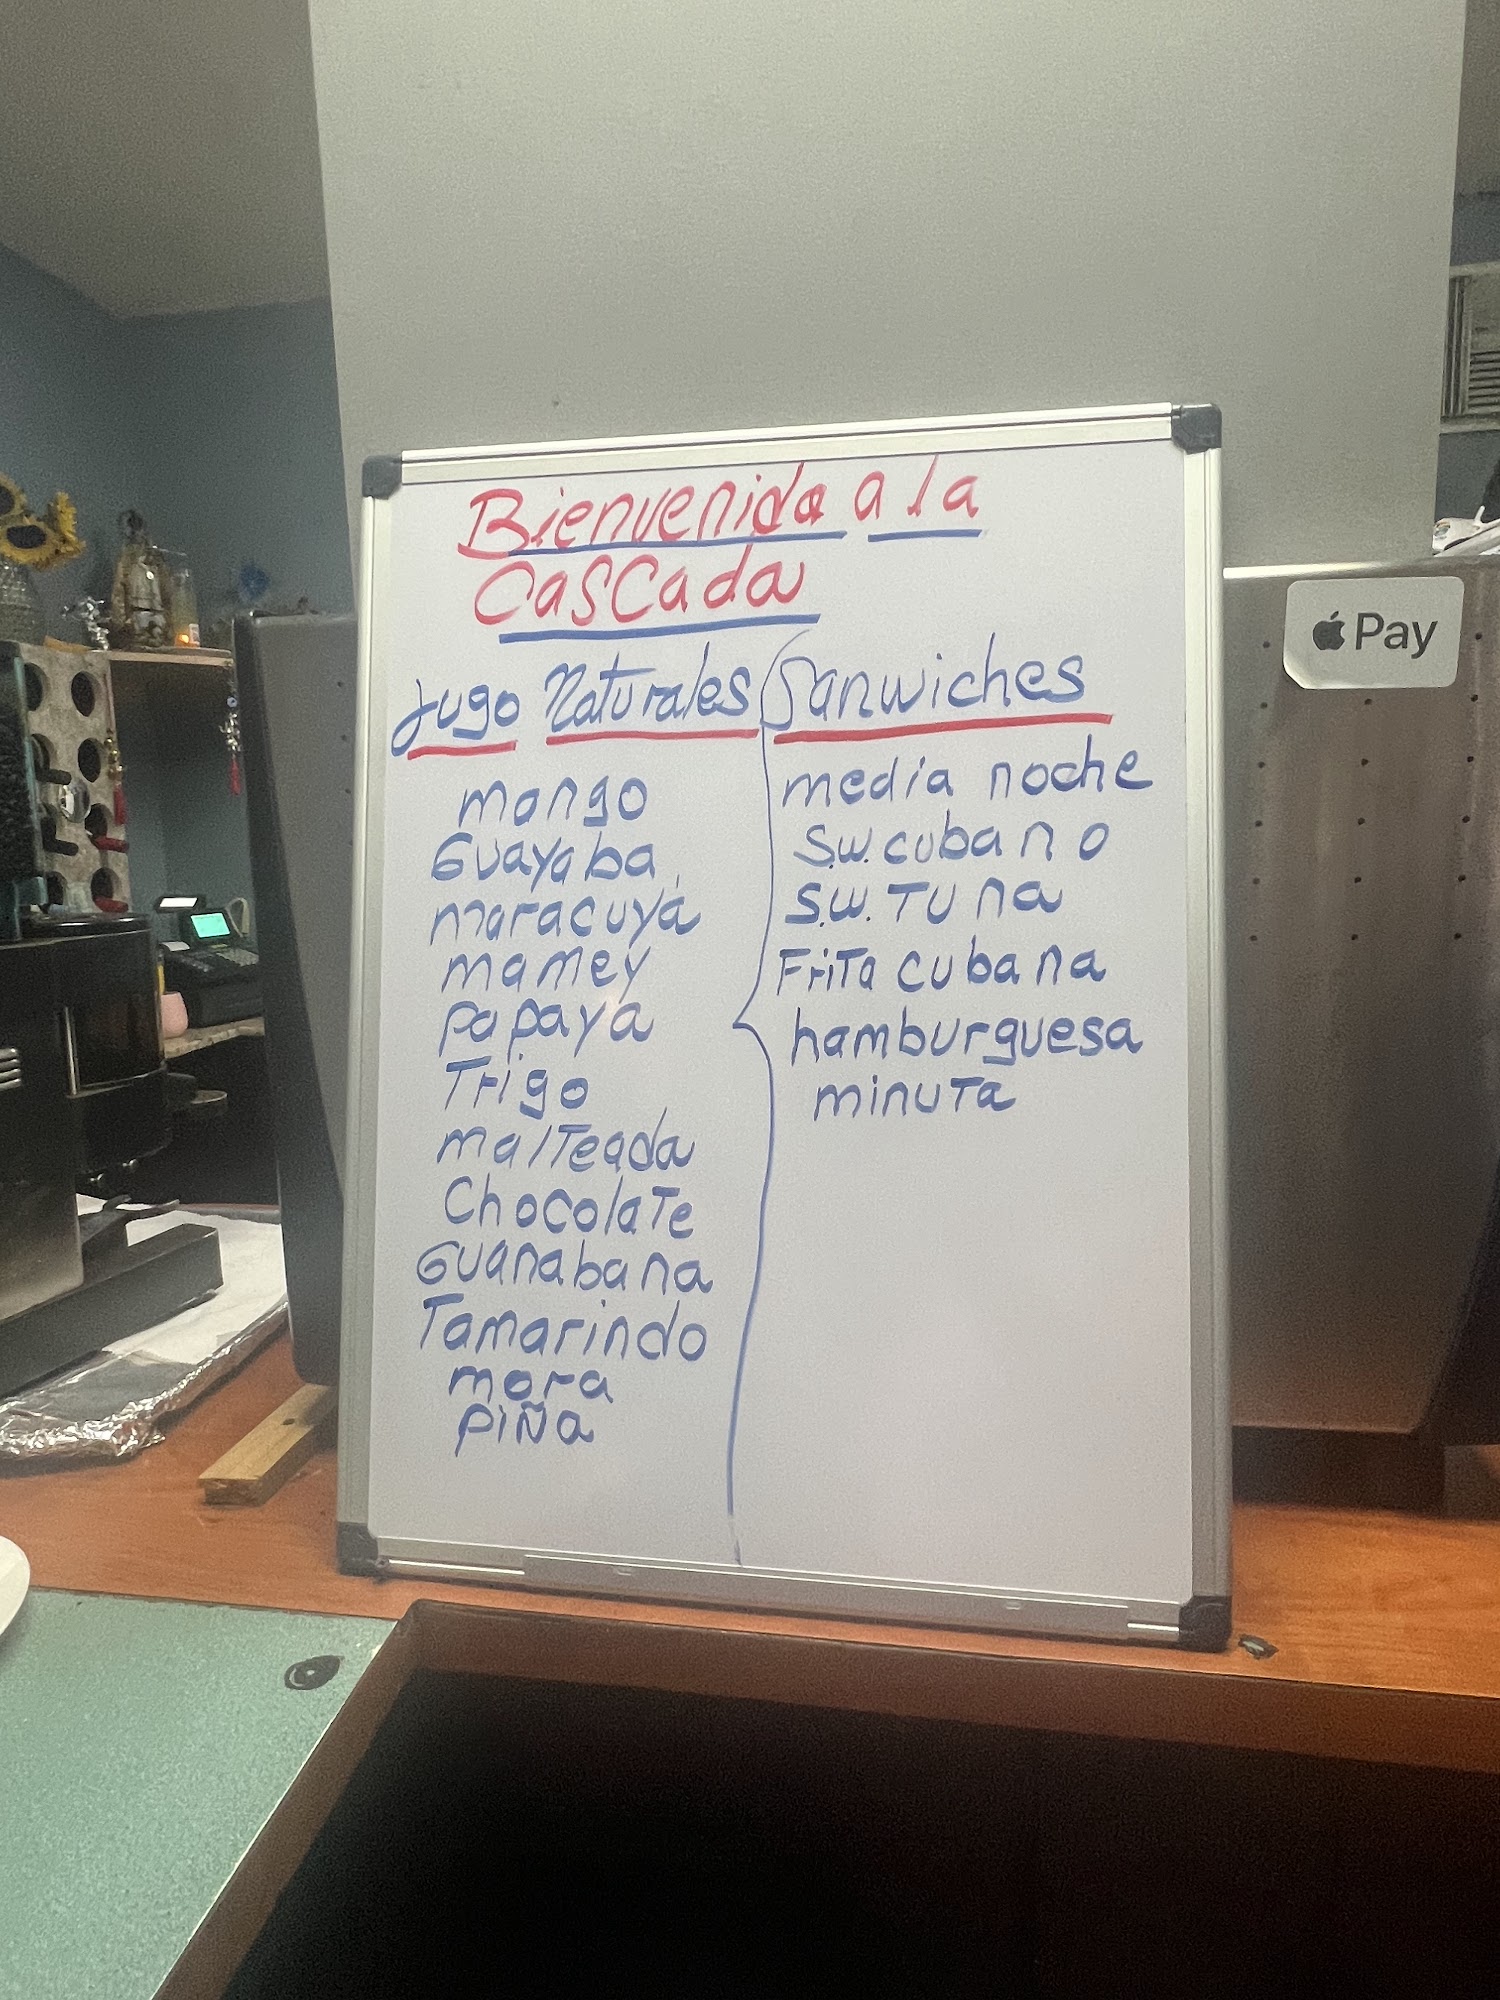 Bienvenida a la
Cascada
Jugo Naturales
mango
Guayaba
maracuyá
mamey
papaya
Trigo
malteada
Chocolate
Guanabana
Tamarindo
mora
piña
Sanwiches
media noche
S.W. cubano
S.W. Tuna
Frita cubana
hamburguesa
minuta
Pay